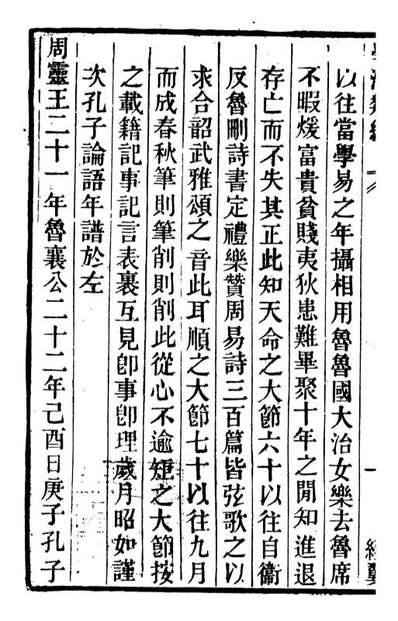 以往當學易之年攝相用魯魯國大治女樂去魯席
不暇煖富貴貧賤夷狄患難畢聚十年之閒知進退
存亡而不失其正此知天命之大節六十以往自衞
反魯刪詩書定禮樂贊周易詩三百篇皆弦歌之以
求合韶武雅頌之音此耳順之大節七十以往九月
而成春秋筆則筆削則削此從心不逾矩之大節按
之載籍記事記言表裏互見卽事卽理歲月昭如謹
次孔子論語年譜於左
周靈王二十一年魯襄公二十二年己酉日庚子孔子